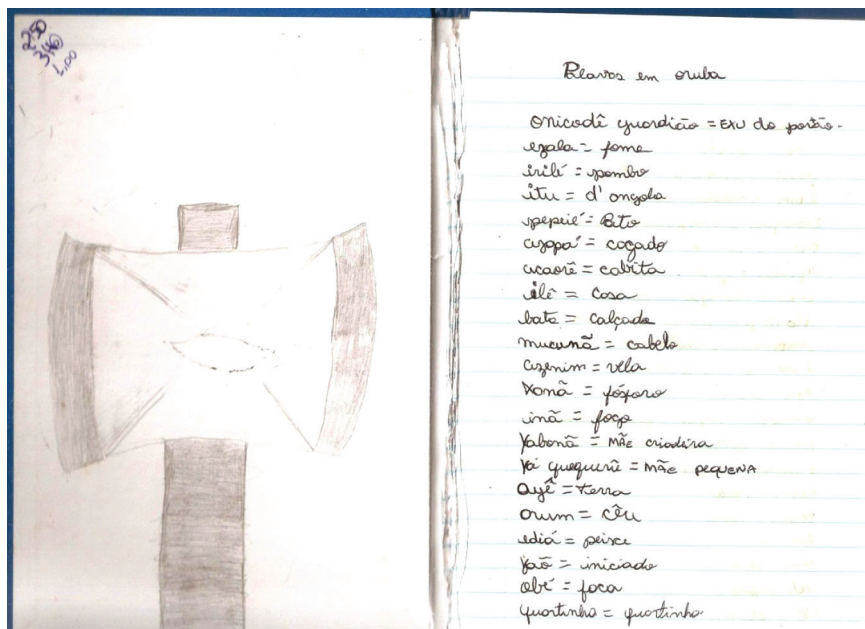 2,50
3,40
1,00
em oruba
onicodê guardião = EXU do portão.
ezala = fome
irilé = pombo
itu = d' angola
pepeié = Pato
azopá = cagado
acaorê = cabrita
ilê = casa
bata = calçado
mucunã = cabelo
azenim = vela
xonã = fósforo
inã = fogo
Yabonã = MÃE criadeira
Yá quequerê = MÃE PEQUENA
ayê = terra
orum = cêu
ediá = peixe
Yaô = iniciado
obé = faca
quartinha = quartinha